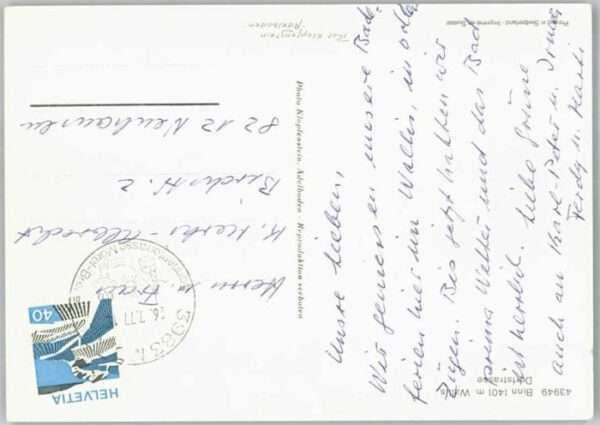 43949 Binn 1401 m Wallis
Dorfstrasse
Unsre Lieben,
Wir geniessen unsere Bade-
ferien hier im Wallis, in vollen
Zügen. Bis jetzt hatten wir
prima Wetter und das Bad
ist herrlich. Liebe Grüsse
auch an Karl-Peter u.
Ferdy u. Marti
Photo Klopfenstein, Adelboden - Reproduktion verboten
Photo Klopfenstein
Adelboden
Printed in Switzerland - Imprimé en Suisse
Herrn u. Frau
K. -Albrecht
8212 Neuhausen
HELVETIA
40